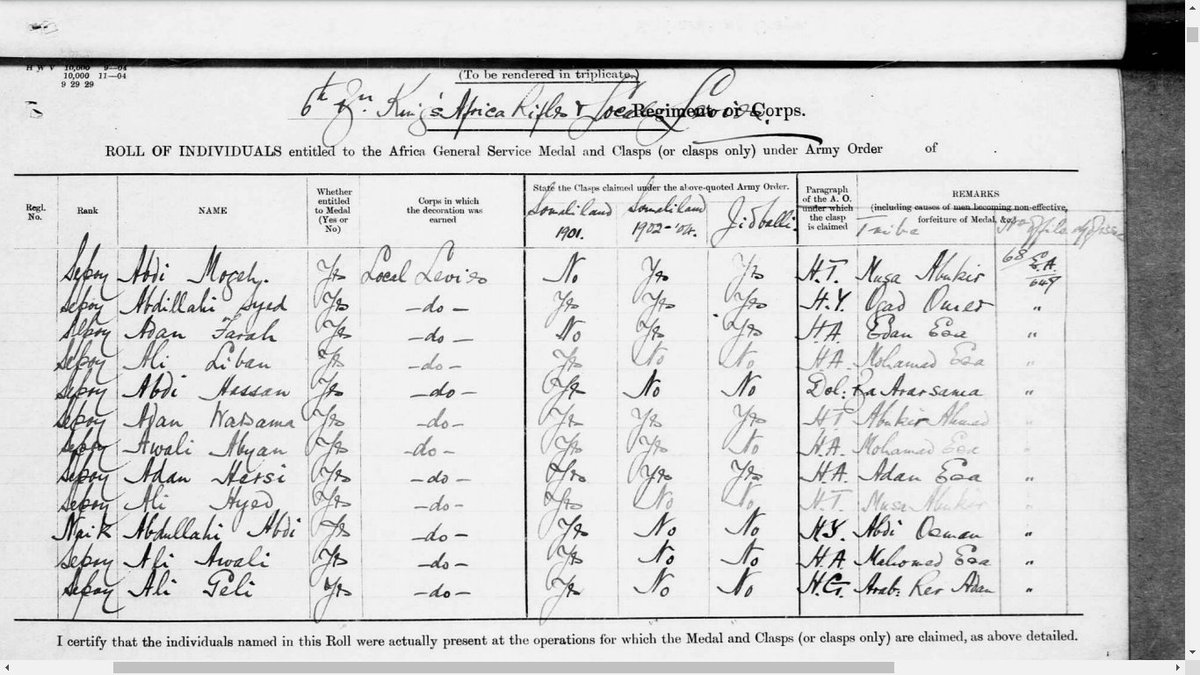 H W V 10,000 9—04
10,000 11—04
9 29 29
(To be rendered in triplicate.)
6th Bn. King's Africa Rifles & Local Levies. Regiment or Corps.
ROLL OF INDIVIDUALS entitled to the Africa General Service Medal and Clasps (or clasps only) under Army Order of .
Regl. No. Rank NAME Whether entitled to Medal (Yes or No) Corps in which the decoration was earned State the Clasps claimed under the above-quoted Army Order. Paragraph of the A. O. under which the clasp is claimed REMARKS (including causes of men becoming non-effective, forfeiture of Medal, &c.)
Somaliland 1901. Somaliland 1902-'04. Jidballi. Tribe
Sepoy Abdi Mogeh. Yes Local Levies No Yes Yes H.T. Musa Abukir 68 E.A. 649
Sepoy Abdillahi Syed Yes —do— Yes Yes Yes H.Y. Ogad Omer "
Sepoy Adan Farah Yes —do— No Yes Yes H.A. Edan Esa "
Sepoy Ali Liban Yes —do— Yes No No H.A. Mohamad Esa "
Sepoy Abdi Hassan Yes —do— Yes No No Dol: Ba Ararsama "
Sepoy Adan Warsama Yes —do— Yes Yes Yes H.T. Abukir Ahmed "
Sepoy Awali Abyan Yes —do— Yes Yes No H.A. Mohamad Esa "
Sepoy Adan Hersi Yes —do— Yes Yes Yes H.A. Adan Esa "
Sepoy Ali Hyed Yes —do— Yes No No H.T. Musa Abukir "
Naik Abdullahi Abdi Yes —do— Yes No No H.Y. Abdi Osman "
Sepoy Ali Awali Yes —do— Yes No No H.A. Mahomed Esa "
Sepoy Ali Geli Yes —do— Yes No No H.G. Arab: Rer Adan "
I certify that the individuals named in this Roll were actually present at the operations for which the Medal and Clasps (or clasps only) are claimed, as above detailed.